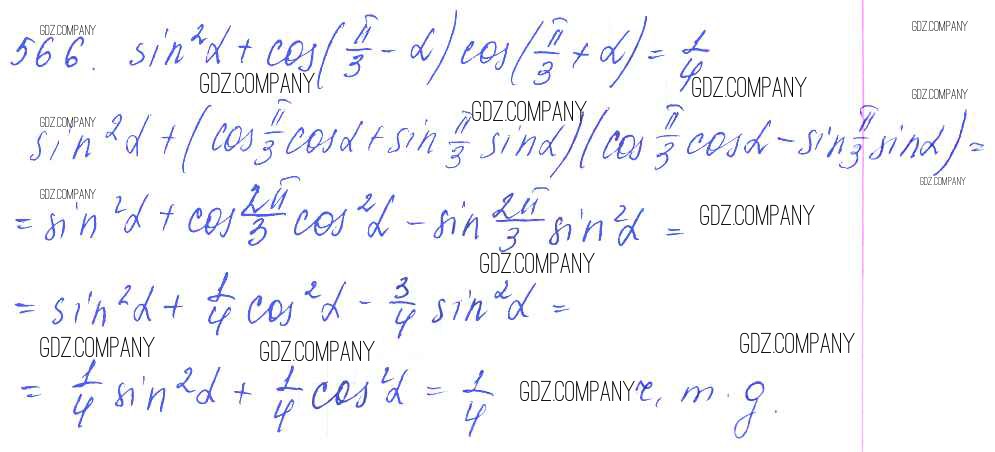 GDZ.COMPANY GDZ.COMPANY
566. sin²α + cos(π/3 - α) cos(π/3 + α) = 1/4
GDZ.COMPANY GDZ.COMPANY GDZ.COMPANY
GDZ.COMPANY GDZ.COMPANY
sin²α + (cos π/3 cosα + sin π/3 sinα)(cos π/3 cosα - sin π/3 sinα) =
GDZ.COMPANY GDZ.COMPANY
= sin²α + cos 2π/3 cos²α - sin 2π/3 sin²α = GDZ.COMPANY
GDZ.COMPANY
= sin²α + 1/4 cos²α - 3/4 sin²α =
GDZ.COMPANY GDZ.COMPANY GDZ.COMPANY
= 1/4 sin²α + 1/4 cos²α = 1/4 GDZ.COMPANY ч. т. д.